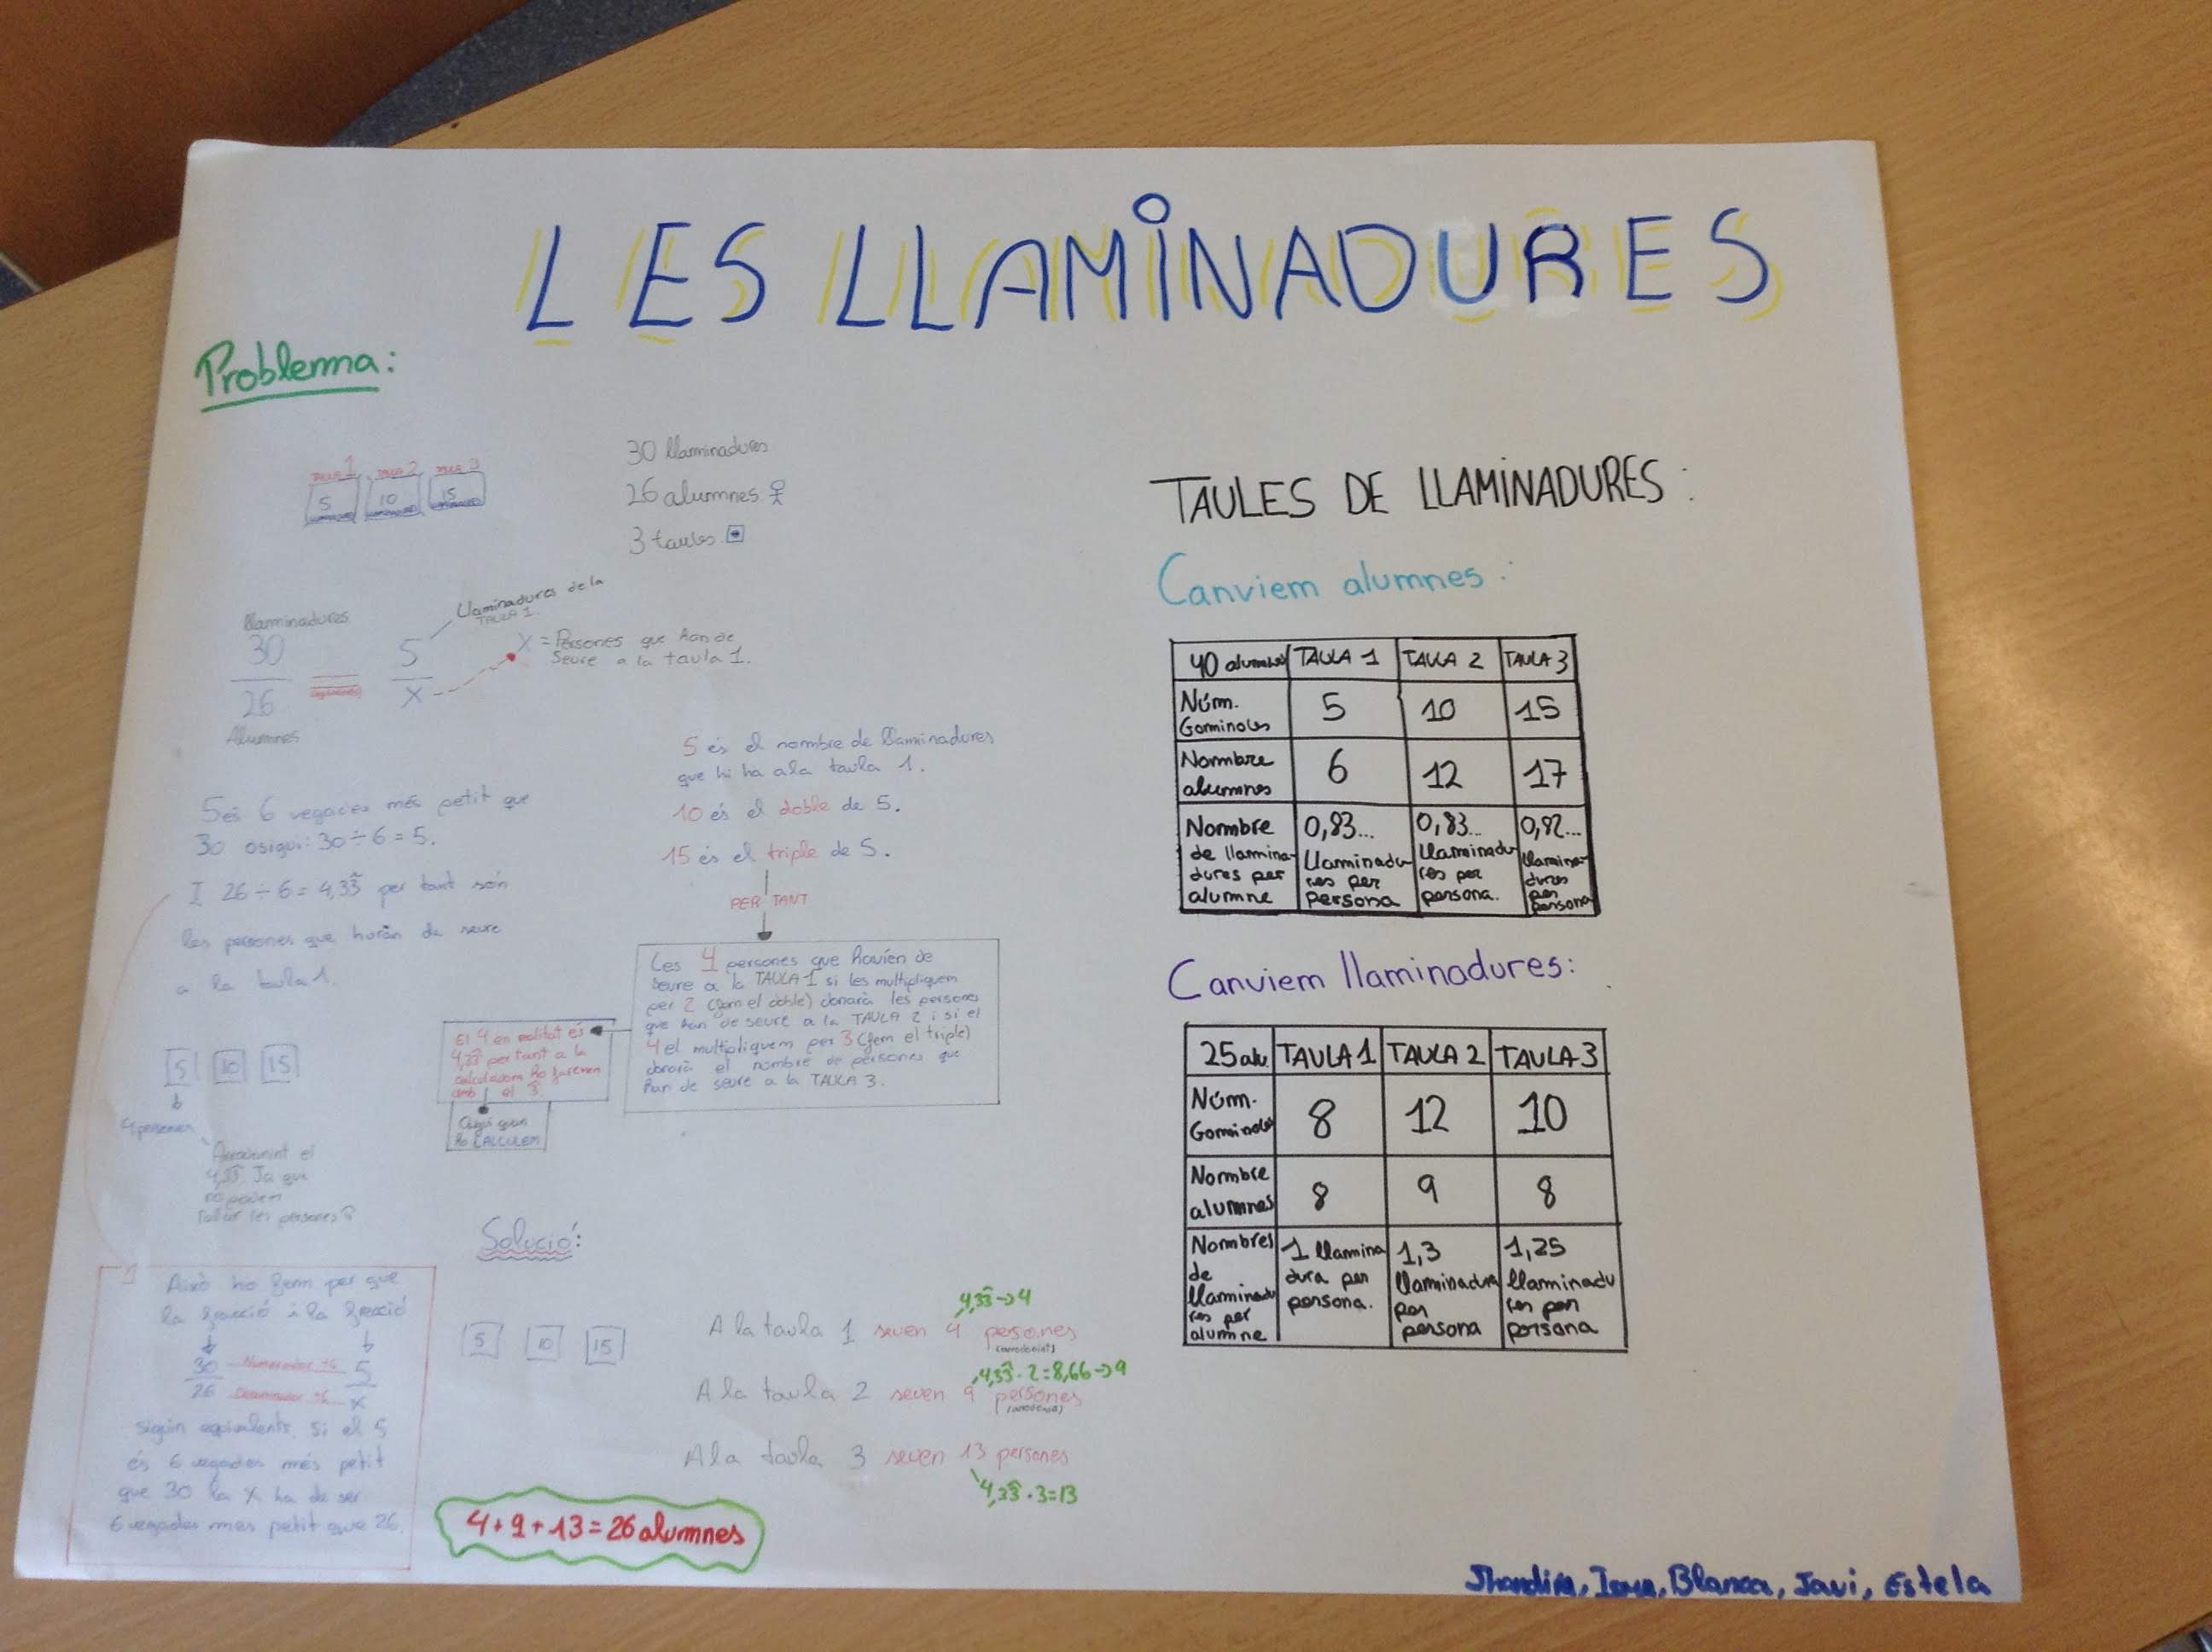 LES LLAMINADURES
Problema:
TAULA 1 TAULA 2 TAULA 3
5 10 15
30 llaminadures
26 alumnes
3 taules
Llaminadures
30
26
Alumnes
5
X
Llaminadures de la
TAULA 1.
X = Persones que han de
seure a la taula 1.
5 és 6 vegades més petit que
30 osigui: 30 ÷ 6 = 5.
I 26 ÷ 6 = 4,33 per tant són
les persones que horàn de seure
a la taula 1.
5 és el nombre de llaminadures
que hi ha a la taula 1.
10 és el doble de 5.
15 és el triple de 5.
PER TANT
Les 4 persones que havien de
seure a la TAULA 1 si les multipliquem
per 2 (fem el doble) donarà les persones
que han de seure a la TAULA 2 i si el
4 el multipliquem per 3 (fem el triple)
donarà el nombre de persones que
han de seure a la TAULA 3.
El 4 en realitat és
4,33 per tant a la
calculadora ho farem
amb el 3
quan
ho CALCULEM
5 10 15
4 persones
Arrodonint el
4,33 Ja que
no podem
tallar les persones
Això ho fem per que
la fracció i la fracció
30 Numerador ÷6 5
26 Denominador ÷6 X
siguin equivalents. Si el 5
és 6 vegades més petit
que 30 la X ha de ser
6 vegades mes petit que 26.
Solució:
5 10 15
4,33 → 4
A la taula 1 seuen 4 persones
(arrodonint)
4,33 · 2 = 8,66 → 9
A la taula 2 seuen 9 persones
(arrodonint)
A la taula 3 seuen 13 persones
4,33 · 3 = 13
4 + 9 + 13 = 26 alumnes
TAULES DE LLAMINADURES:
Canviem alumnes:
40 alumnes TAULA 1 TAULA 2 TAULA 3
Núm.
Gominoles 5 10 15
Nombre
alumnes 6 12 17
Nombre
de llamina-
dures per
alumne
0,83...
Llaminadu
res per
persona
0,83...
Llaminadu
res per
persona.
0,82...
llamina-
dures
per
persona
Canviem llaminadures:
25 alu. TAULA 1 TAULA 2 TAULA 3
Núm.
Gominoles 8 12 10
Nombre
alumnes 8 9 8
Nombres
de
llaminadu
res per
alumne
1 llamina
dura per
persona.
1,3
llaminadura
per
persona
1,25
llaminadu
res per
persona
Blanca, Javi, Estela